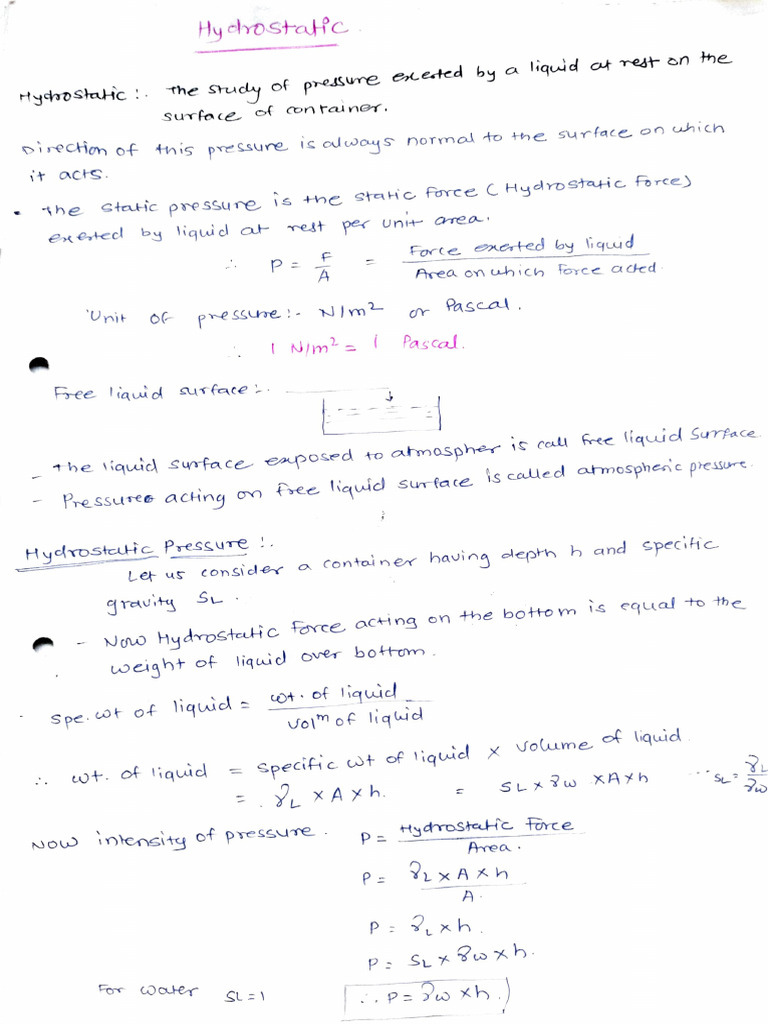 Hydrostatic
Hydrostatic :. The study of pressure exerted by a liquid at rest on the
surface of container.
Direction of this pressure is always normal to the surface on which
it acts.
• The static pressure is the static force (Hydrostatic Force)
exerted by liquid at rest per unit area.
∴ P = F/A = Force exerted by liquid / Area on which Force acted
Unit of pressure :- N/m² or Pascal.
∴ 1 N/m² = 1 Pascal.
Free liquid surface :-
- The liquid surface exposed to atmospher is call free liquid surface
- Pressure acting on free liquid surface is called atmospheric pressure.
Hydrostatic Pressure :.
Let us consider a container having depth h and specific
gravity SL.
- Now Hydrostatic Force acting on the bottom is equal to the
weight of liquid over bottom.
Spe. wt of liquid = wt. of liquid / volᵐ of liquid
∴ wt. of liquid = specific wt of liquid × volume of liquid
= γL × A × h. = SL × γw × A × h ∵ SL = γL/γw
Now intensity of pressure. P = Hydrostatic Force / Area.
P = γL × A × h / A.
P = γL × h.
P = SL × γw × h.
For water SL = 1 ∴ P = γw × h.